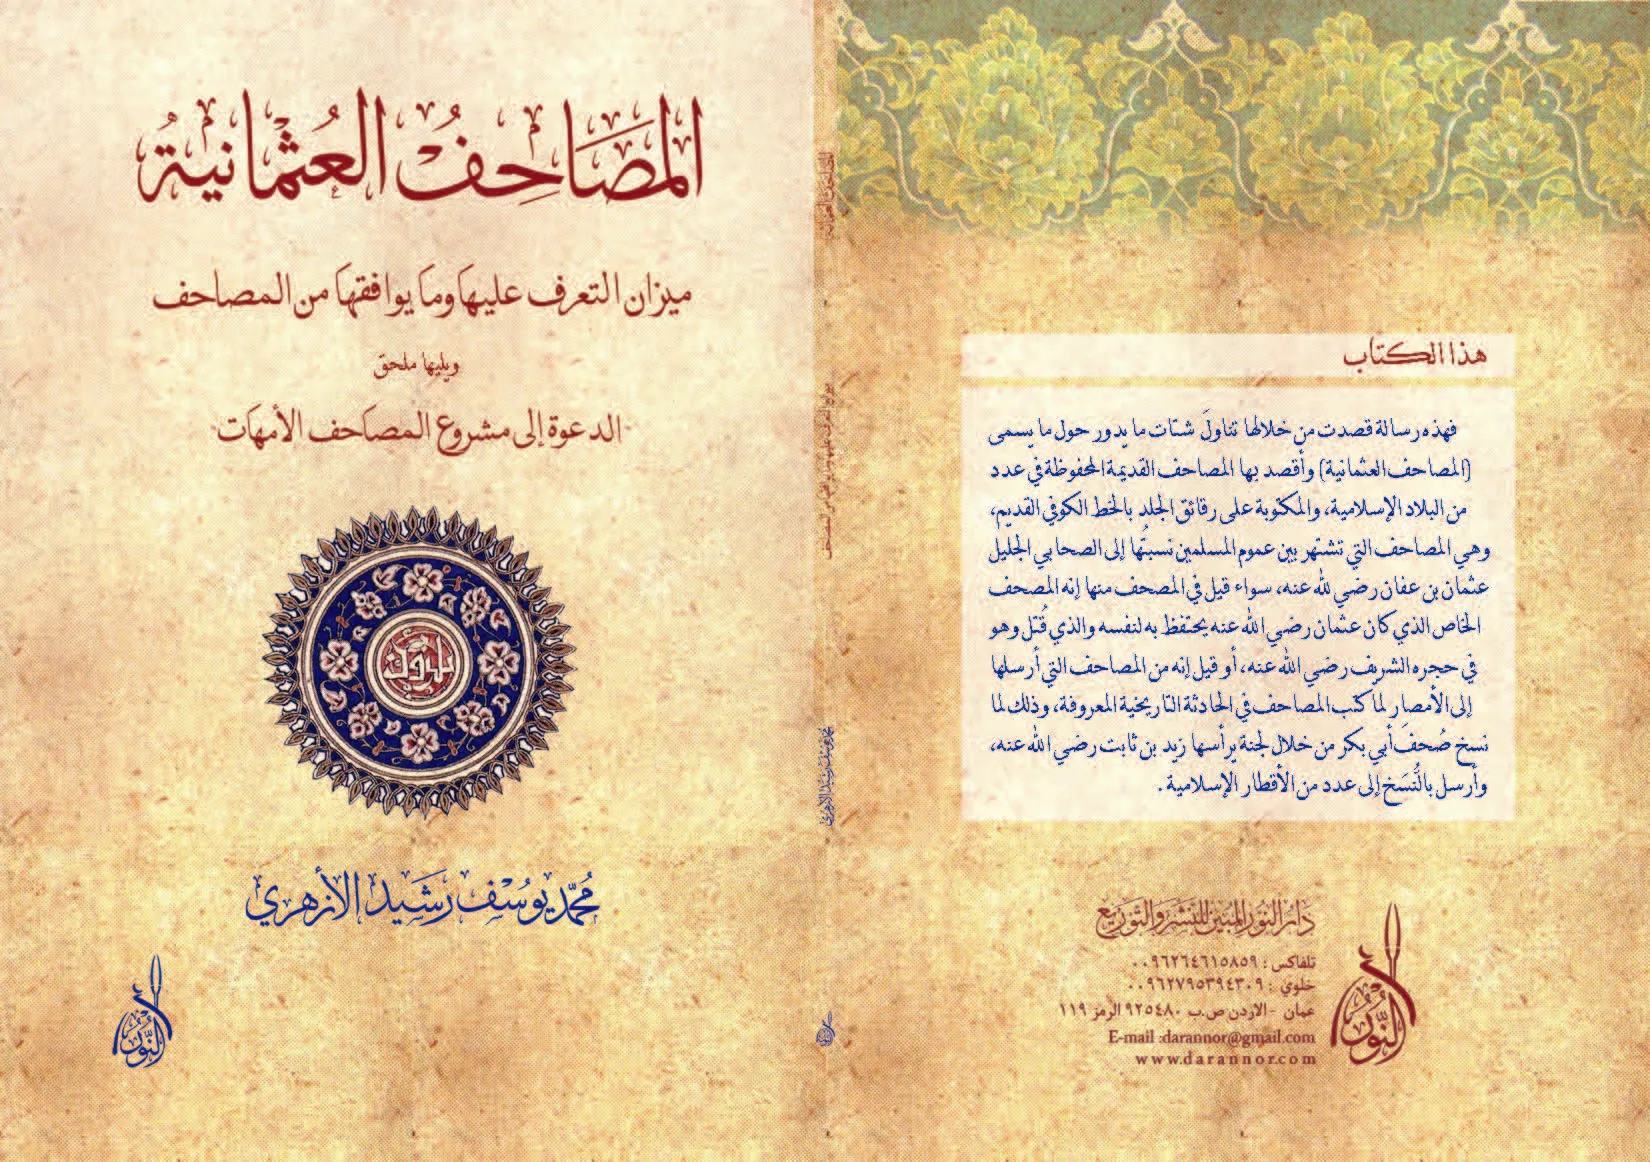 المصَاحِفُ العُثمانيةُ
ميزان التعرف عليها وما يوافقها من المصاحف
ويليها ملحق
الدعوة إلى مشروع المصاحف الأمهات
مُحمّد يوسُف رَشيد الأزهري
النُّور
المصاحف العثمانية
ميزان التعرف عليها وما يوافقها من المصاحف
محمد يوسف رشيد الأزهري
هذا الكتاب
فهذه رسالة قصدت من خلالها تناولَ شتات ما يدور حول ما يسمى
(المصاحف العثمانية) وأقصد بها المصاحف القديمة المحفوظة في عدد
من البلاد الإسلامية، والمكتوبة على رقائق الجلد بالخط الكوفي القديم،
وهي المصاحف التي تشتهر بين عموم المسلمين نسبتُها إلى الصحابي الجليل
عثمان بن عفان رضي لله عنه، سواء قيل في المصحف منها إنه المصحف
الخاص الذي كان عثمان رضي الله عنه يحتفظ به لنفسه والذي قُتل وهو
في حجره الشريف رضي الله عنه، أو قيل إنه من المصاحف التي أرسلها
إلى الأمصار لما كتب المصاحف في الحادثة التاريخية المعروفة، وذلك لما
نسخ صُحفَ أبي بكر من خلال لجنة يرأسها زيد بن ثابت رضي الله عنه،
وأرسل بالنُّسَخ إلى عدد من الأقطار الإسلامية.
دَار النّور المُبين للنشر والتوزيع
تلفاكس : ٠٠٩٦٢٦٤٦١٥٨٥٩
خلوي : ٠٠٩٦٢٧٩٥٣٩٤٣٠٩
عمان - الاردن ص.ب ٩٢٥٤٨٠ الرمز ١١٩
E-mail :darannor@gmail.com
www.darannor.com
النُّور